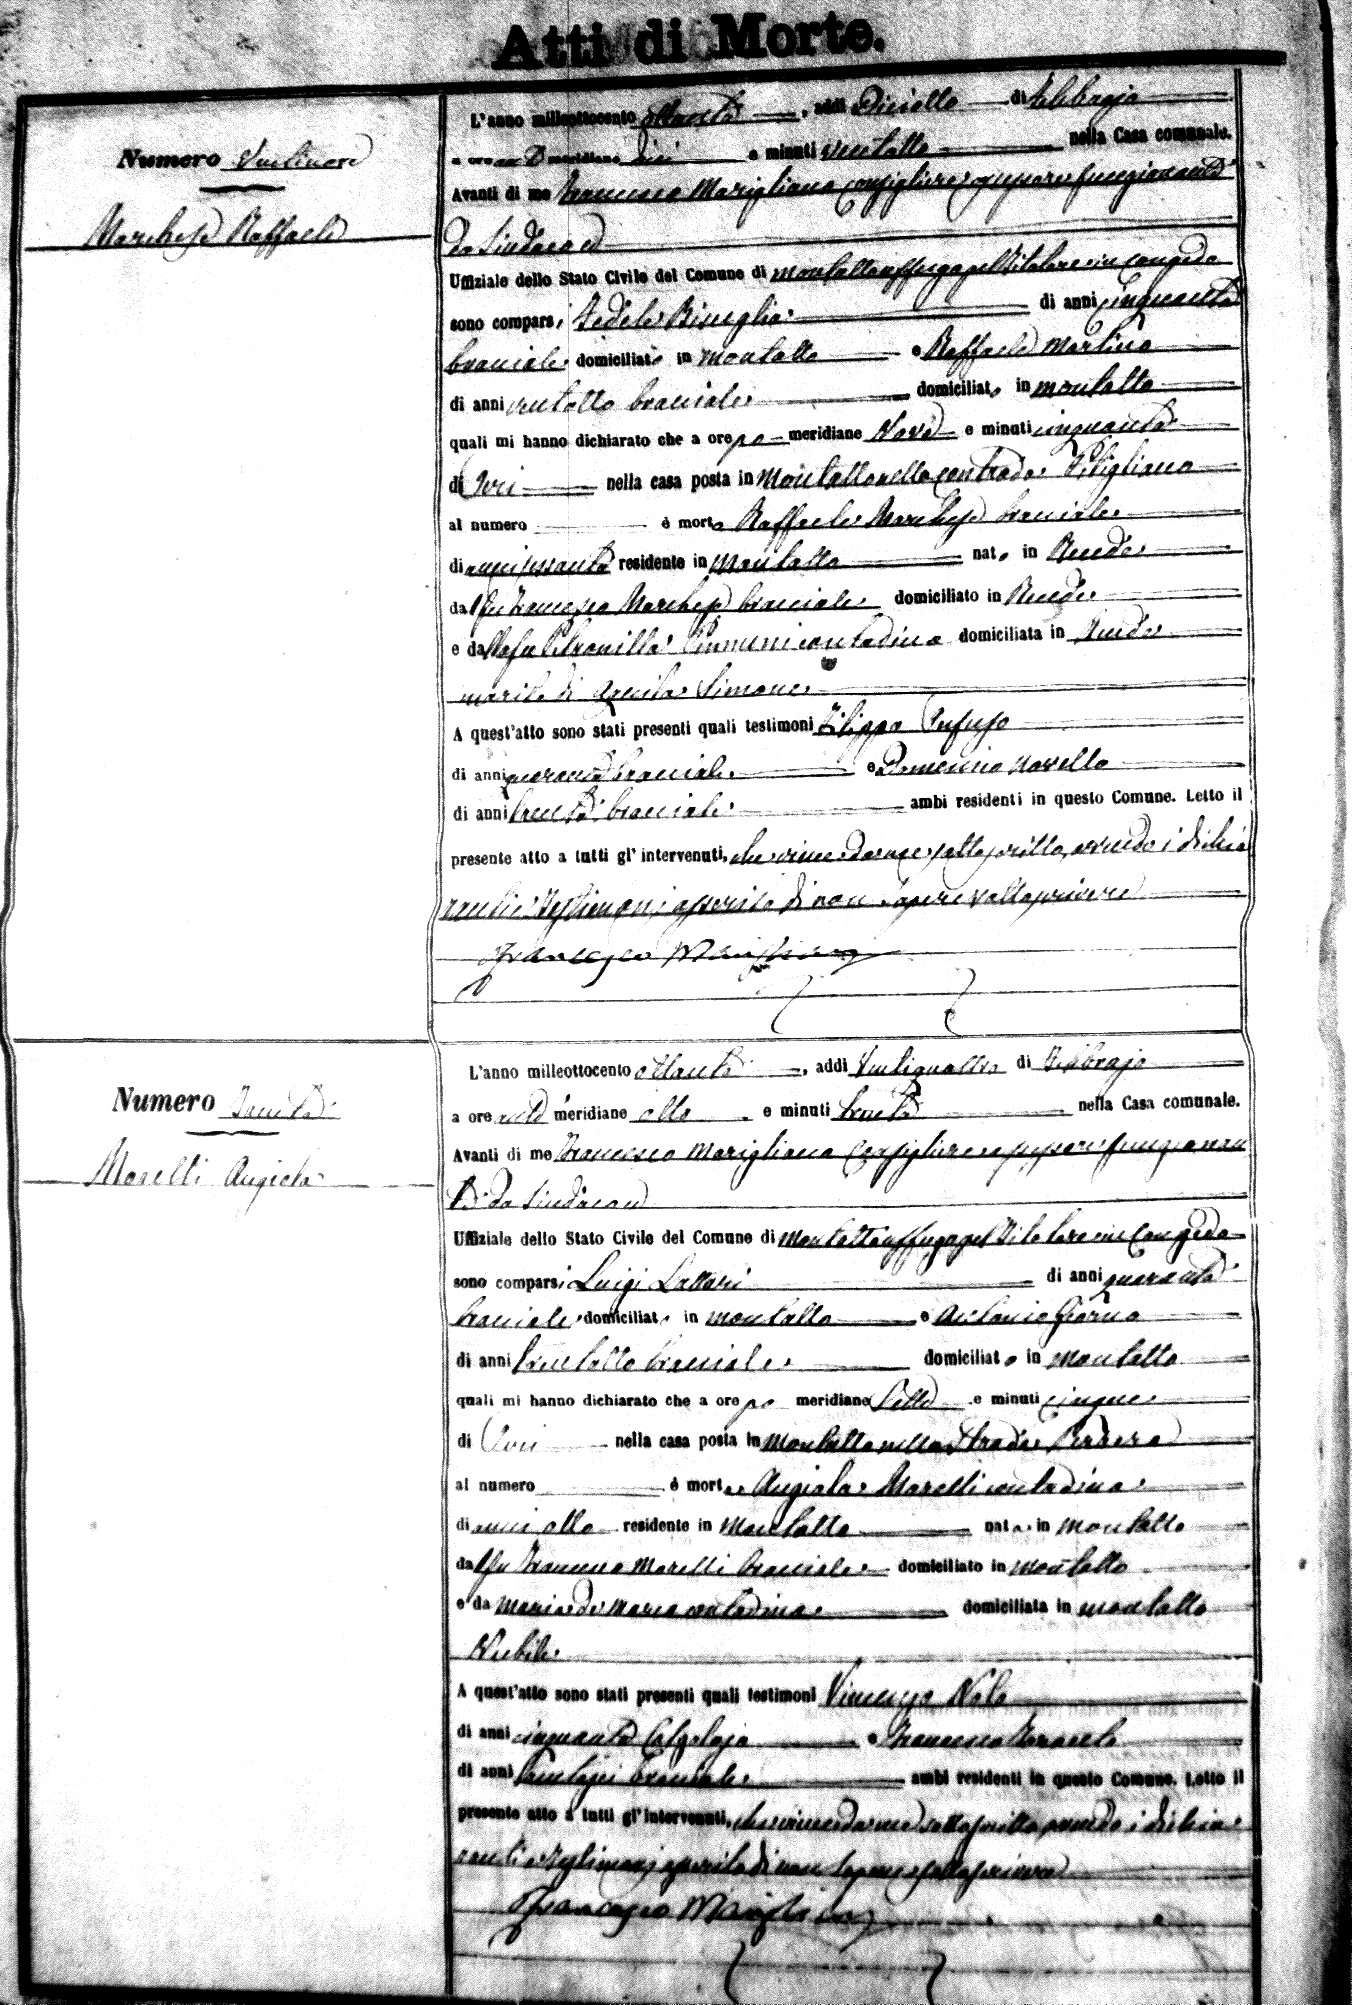 Atti di Morte.
Numero Ventinove
Marchese Raffaele
L'anno milleottocento ottanta, addì Diciotto di Febbrajo
a ore anti meridiane dieci e minuti ventotto nella Casa comunale.
Avanti di me Francesco Marigliano Consigliere assessore funzionante
da Sindaco ed
Uffiziale dello Stato Civile del Comune di Montalto uffugo pel titolare in congedo
sono comparsi Fedele Bisceglia di anni cinquanta
bracciale domiciliato in Montalto e Raffaele Martino
di anni ventotto bracciale domiciliato in Montalto
quali mi hanno dichiarato che a ore po meridiane Nove e minuti cinquanta
di Jeri nella casa posta in Montalto nella contrada
al numero è morto Raffaele Marchese bracciale
di anni sessanta residente in Montalto nato in Rende
dal fu Francesco Marchese bracciale domiciliato in Rende
e dalla fu Petronilla contadina domiciliata in Rende
marito di Simone
A quest'atto sono stati presenti quali testimoni Filippo
di anni quaranta bracciale e Domenico Novello
di anni trenta bracciale ambi residenti in questo Comune. Letto il
presente atto a tutti gl'intervenuti, che viene da me sottoscritto, avendo i dichia
ranti e testimoni asserito di non sapere sottoscrivere
Francesco Marigliano
Numero Trenta
Morelli Angiola
L'anno milleottocento ottanta, addì Ventiquattro di Febbrajo
a ore anti meridiane otto e minuti trenta nella Casa comunale.
Avanti di me Francesco Marigliano Consigliere assessore funzionan
te da Sindaco ed
Uffiziale dello Stato Civile del Comune di Montalto uffugo pel titolare in congedo
sono comparsi Luigi Lattari di anni quaranta
bracciale domiciliato in Montalto e Antonio Giorno
di anni trentotto bracciale domiciliato in Montalto
quali mi hanno dichiarato che a ore po meridiane Sette e minuti cinque
di Jeri nella casa posta in Montalto nella strada
al numero è morta Angiola Morelli contadina
di anni otto residente in Montalto nata in Montalto
dal fu Francesco Morelli bracciale domiciliato in Montalto
e da Maria de Marco contadina domiciliata in Montalto
Nubile
A quest'atto sono stati presenti quali testimoni Vincenzo Nola
di anni cinquanta Calzolajo e Francesco
di anni trentasei bracciale ambi residenti in questo Comune. Letto il
presente atto a tutti gl'intervenuti, che viene da me sottoscritto avendo i dichia
ranti e testimoni asserito di non sapere sottoscrivere
Francesco Marigliano